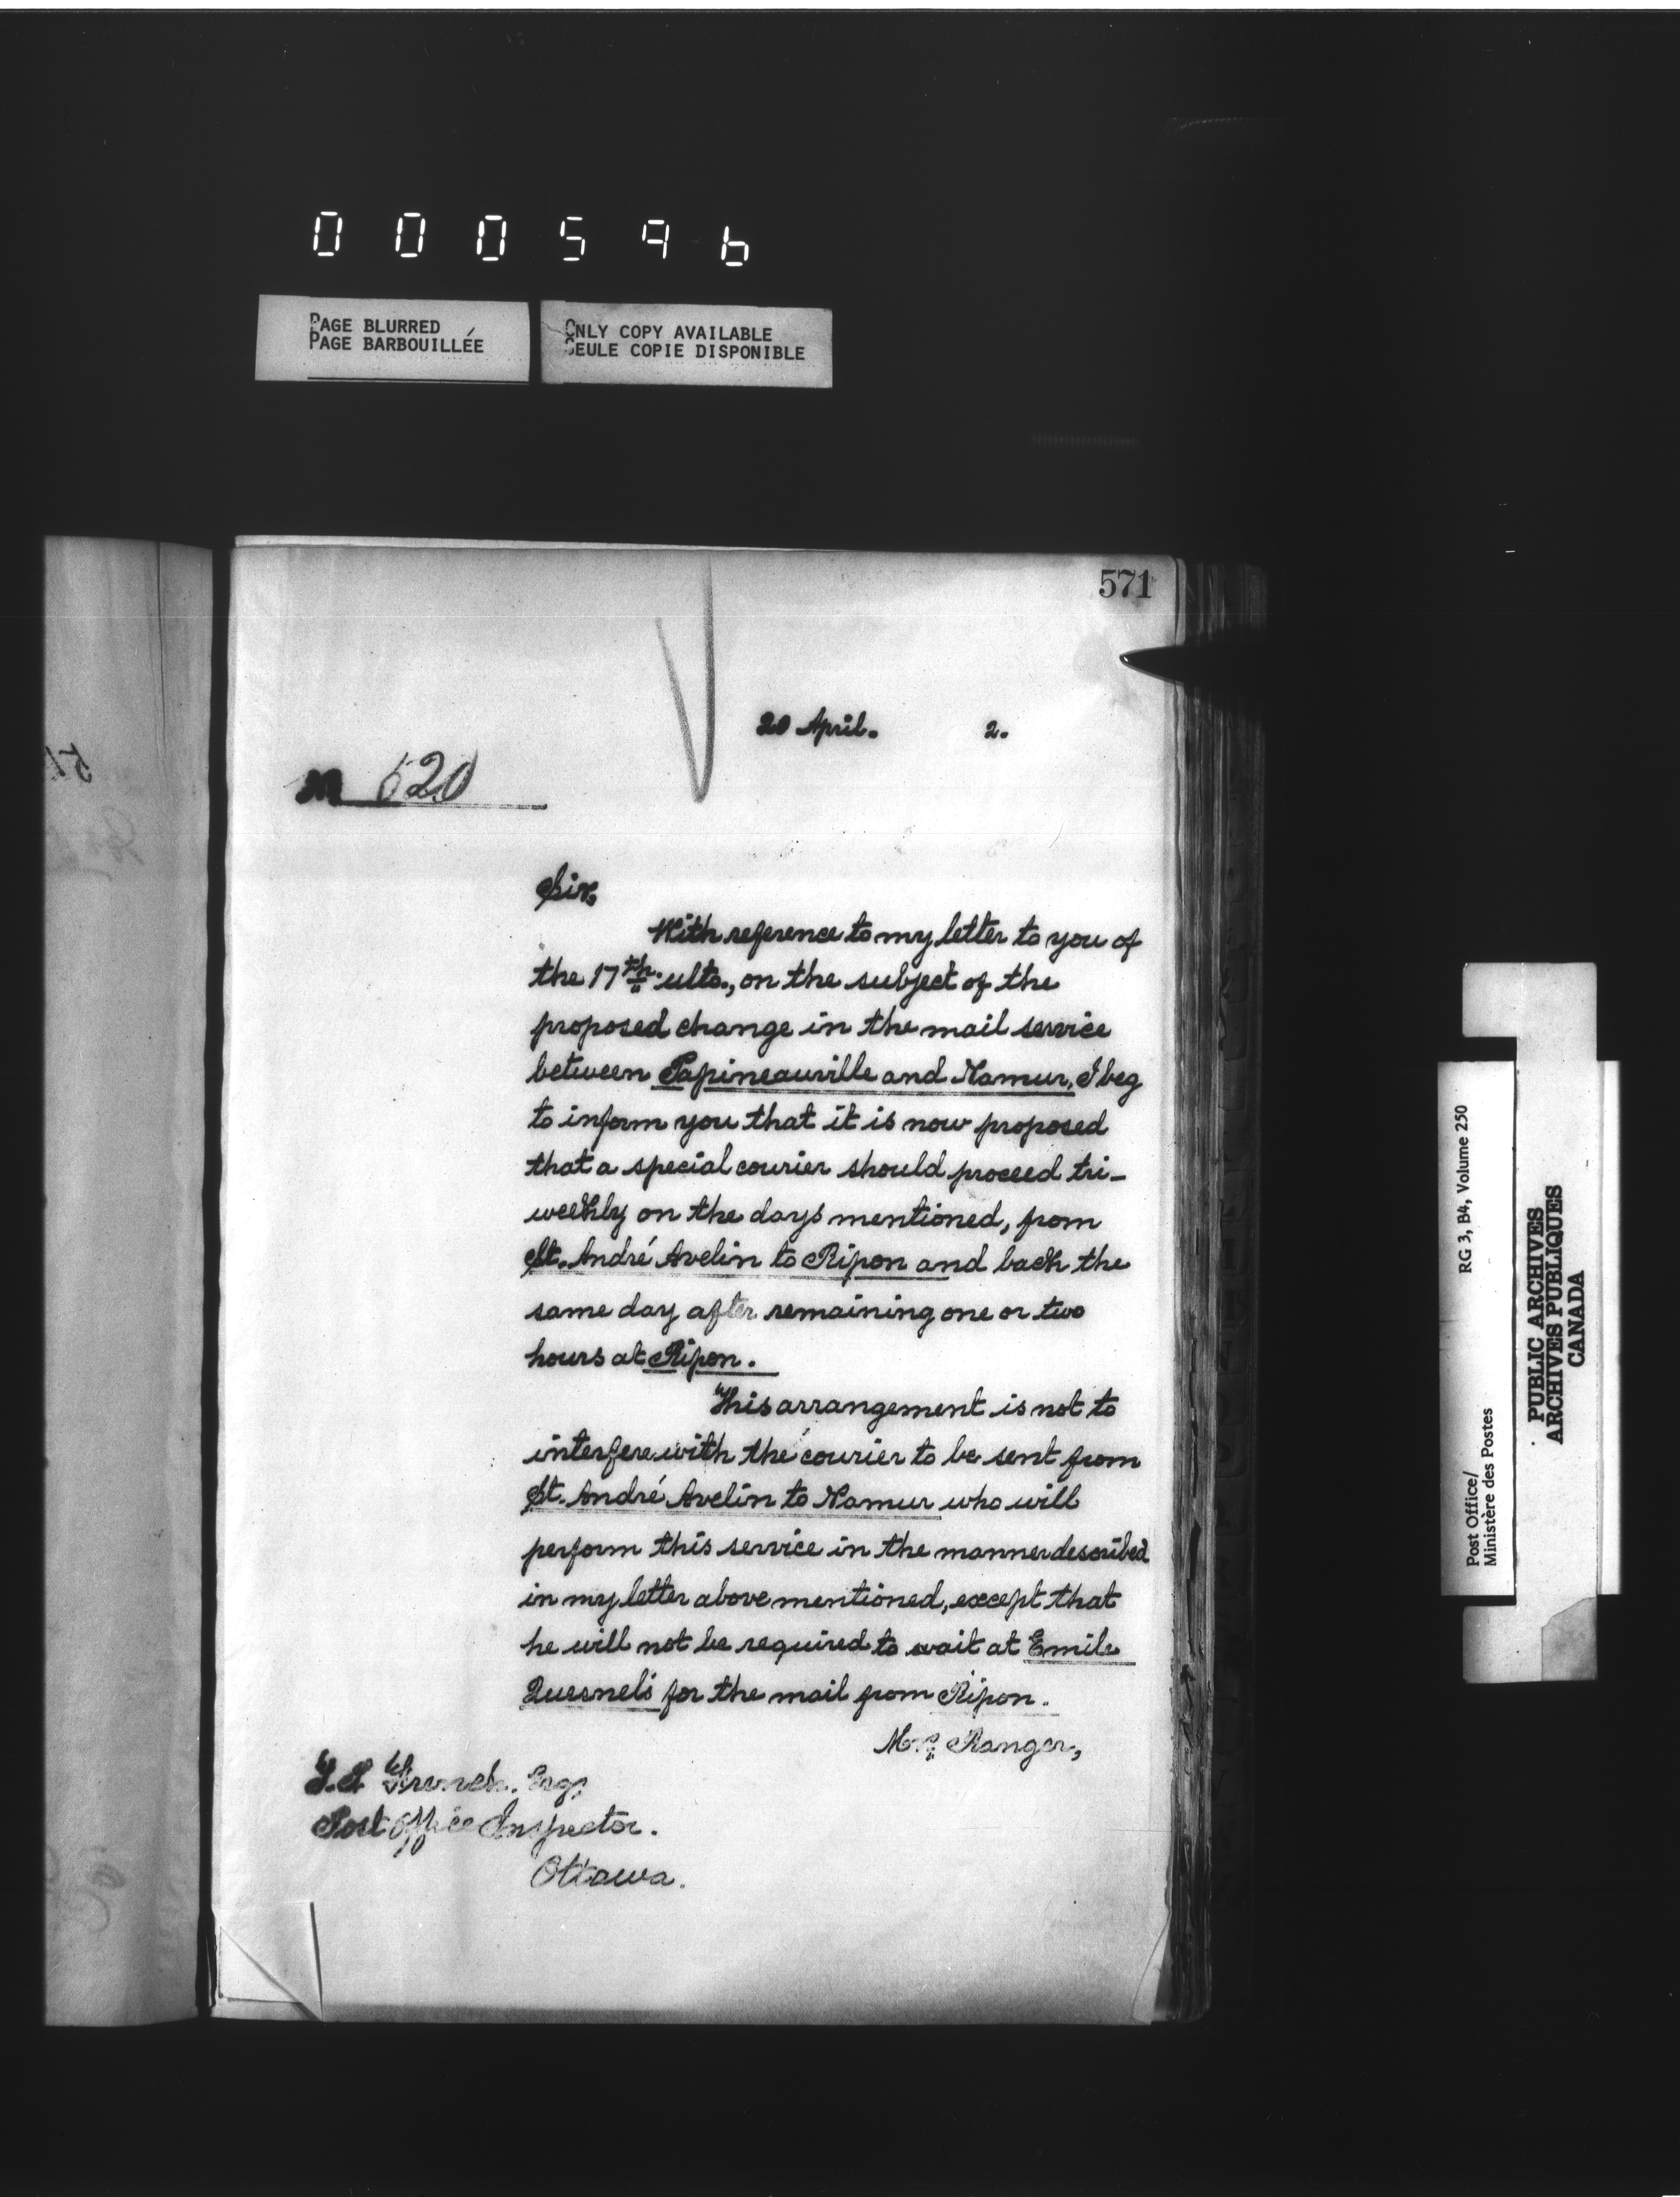 000596
PAGE BLURRED
PAGE BARBOUILLÉE
ONLY COPY AVAILABLE
SEULE COPIE DISPONIBLE
571
20 April. 2.
M 520
Sir,
With reference to my letter to you of
the 17th. ulto., on the subject of the
proposed change in the mail service
between Papineauville and Namur, I beg
to inform you that it is now proposed
that a special courier should proceed tri-
weekly on the days mentioned, from
St. André Avelin to Ripon and back the
same day after remaining one or two
hours at Ripon.
This arrangement is not to
interfere with the courier to be sent from
St. André Avelin to Namur who will
perform this service in the manner described
in my letter above mentioned, except that
he will not be required to wait at Emile
Quesnel's for the mail from Ripon.
Mr. Ranger,
French. Esq,
Post Office Inspector.
Ottawa.
RG 3, B4, Volume 250
Post Office/
Ministère des Postes
PUBLIC ARCHIVES
ARCHIVES PUBLIQUES
CANADA